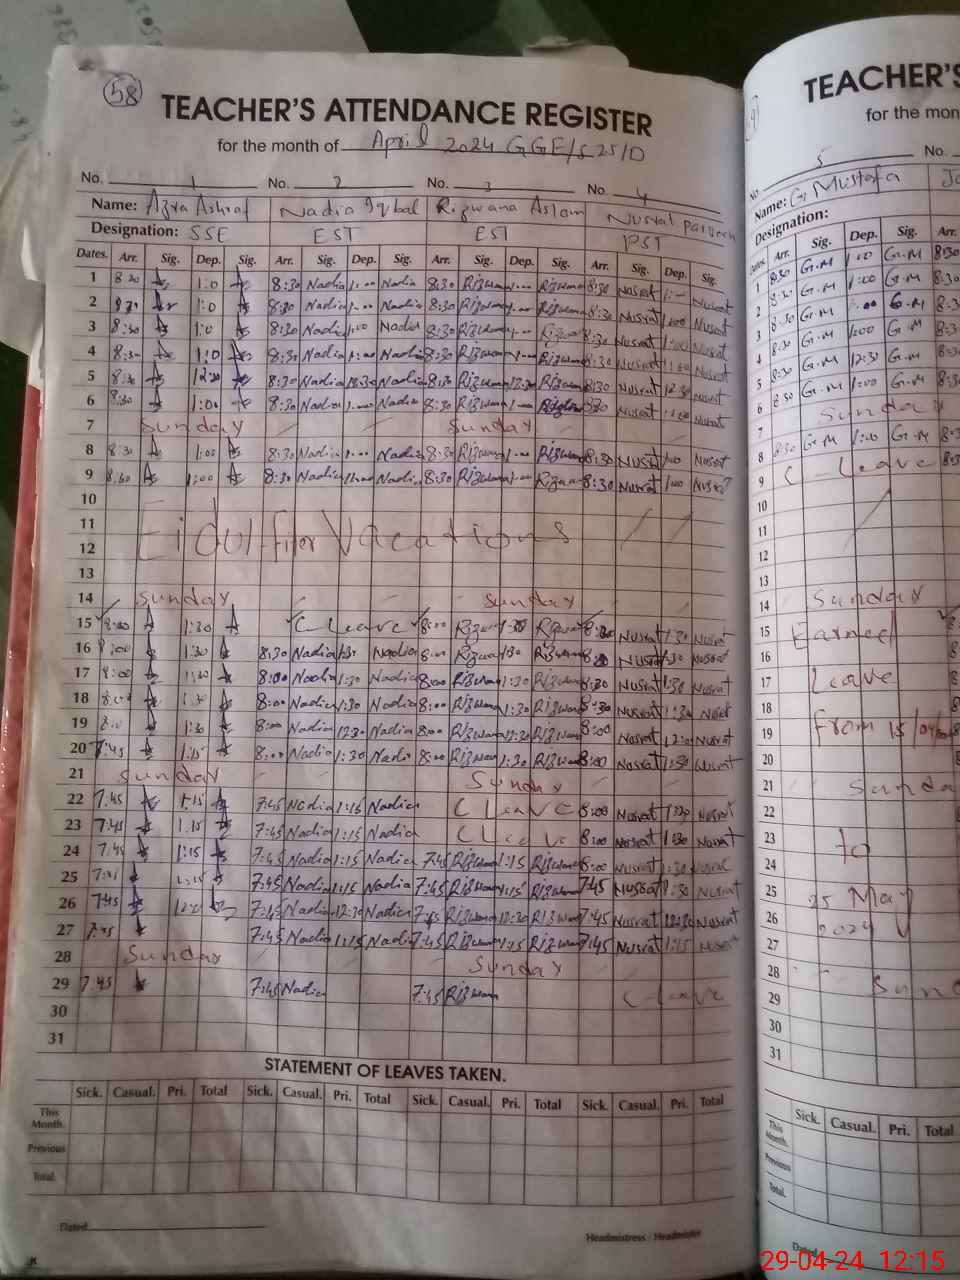 58
TEACHER'S ATTENDANCE REGISTER
for the month of April 2024 GGE/S 25/D
No. 1 No. 2 No. 3 No. 4
Name: Azra Ashraf Nadia Iqbal Rizwana Aslam Nusrat Parveen
Designation: SSE EST EST PST
Dates. Arr. Sig. Dep. Sig. Arr. Sig. Dep. Sig. Arr. Sig. Dep. Sig. Arr. Sig. Dep. Sig.
1 8:30 1:0 8:30 Nadia Nadia 8:30 Rizwana Rizwana 8:30 Nusrat Nusrat
2 8:30 1:0 8:30 Nadia Nadia 8:30 Rizwana Rizwana 8:30 Nusrat 1:00 Nusrat
3 8:30 1:0 8:30 Nadia 1:00 Nadia 8:30 Rizwana Rizwana 8:30 Nusrat 1:00 Nusrat
4 8:30 1:0 8:30 Nadia 1:00 Nadia 8:30 Rizwana Rizwana 8:30 Nusrat 1:00 Nusrat
5 8:30 12:30 8:30 Nadia 12:30 Nadia 8:30 Rizwana 12:30 Rizwana 8:30 Nusrat 12:30 Nusrat
6 8:30 1:00 8:30 Nadia Nadia 8:30 Rizwana 8:30 Nusrat 1:00 Nusrat
7 Sunday Sunday
8 8:30 1:00 8:30 Nadia Nadia 8:30 Rizwana Rizwana 8:30 Nusrat 1:00 Nusrat
9 8:30 1:00 8:30 Nadia 1:00 Nadia 8:30 Rizwana Rizwana 8:30 Nusrat 1:00 Nusrat
10
11 Eidul fiter Vacations
12
13
14 Sunday Sunday
15 8:00 1:30 C Leave 8:00 Rizwana 1:30 Rizwana Nusrat 1:30 Nusrat
16 8:00 1:30 8:30 Nadia 1:30 Nadia 8:00 Rizwana 1:30 Rizwana Nusrat 1:30 Nusrat
17 8:00 1:30 8:00 Nadia 1:30 Nadia 8:00 Rizwana 1:30 Rizwana 8:30 Nusrat 1:30 Nusrat
18 8:00 1:30 8:00 Nadia 1:30 Nadia 8:00 Rizwana 1:30 Rizwana 8:30 Nusrat 1:30 Nusrat
19 8:00 1:30 8:00 Nadia 12:30 Nadia 8:00 Rizwana 12:30 Rizwana 8:00 Nusrat Nusrat
20 7:45 1:15 8:00 Nadia 1:30 Nadia 8:00 Rizwana 1:30 Rizwana 8:00 Nusrat 1:30 Nusrat
21 Sunday Sunday
22 7:45 1:15 7:45 Nadia 1:15 Nadia C Leave 8:00 Nusrat 1:30 Nusrat
23 7:45 1.15 7:45 Nadia 1:15 Nadia C Leave 8:00 Nusrat 1:30 Nusrat
24 7:45 1:15 7:45 Nadia 1:15 Nadia 7:45 Rizwana 1:15 Rizwana 8:00 Nusrat 1:30 Nusrat
25 1:15 7:45 Nadia 1:15 Nadia 7:45 Rizwana 1:15 Rizwana 7:45 Nusrat 1:30 Nusrat
26 7:45 7:45 Nadia 12:30 Nadia 7:45 Rizwana 12:30 Rizwana 7:45 Nusrat 12:30 Nusrat
27 7:45 7:45 Nadia 1:15 Nadia 7:45 Rizwana 1:15 Rizwana 7:45 Nusrat 1:15 Nusrat
28 Sunday Sunday
29 7:45 7:45 Nadia 7:45 Rizwana C Leave
30
31
STATEMENT OF LEAVES TAKEN.
Sick. Casual. Pri. Total Sick. Casual. Pri. Total Sick. Casual. Pri. Total Sick. Casual. Pri. Total
This Month.
Previous
Total.
Dated
Headmistress / Headmister
TEACHER'S
for the mon
No. 5 No.
Name: G. Mustafa
Designation:
Dates. Arr. Sig. Dep. Sig. Arr.
1 8:30 G.M 1:00 G.M 8:30
2 8:30 G.M 1:00 G.M
3 8:30 G.M G.M
4 8:30 G.M 1:00 G.M
5 8:30 G.M 12:30 G.M
6 8:30 G.M 1:00 G.M
7 Sunday
8 8:30 G.M 1:00 G.M
9 C Leave
10
11
12
13
14 Sunday
15 Earned
16
17 Leave
18
19 From 15/04/
20
21 Sunda
22
23 to
24
25 25 May
26 2024
27
28
29 Sun
30
31
Sick. Casual. Pri. Total
This Month.
Previous
Total.
Dated
29-04-24 12:15